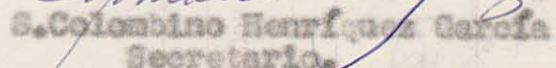 S.Colombino Henríquez García
Secretario.